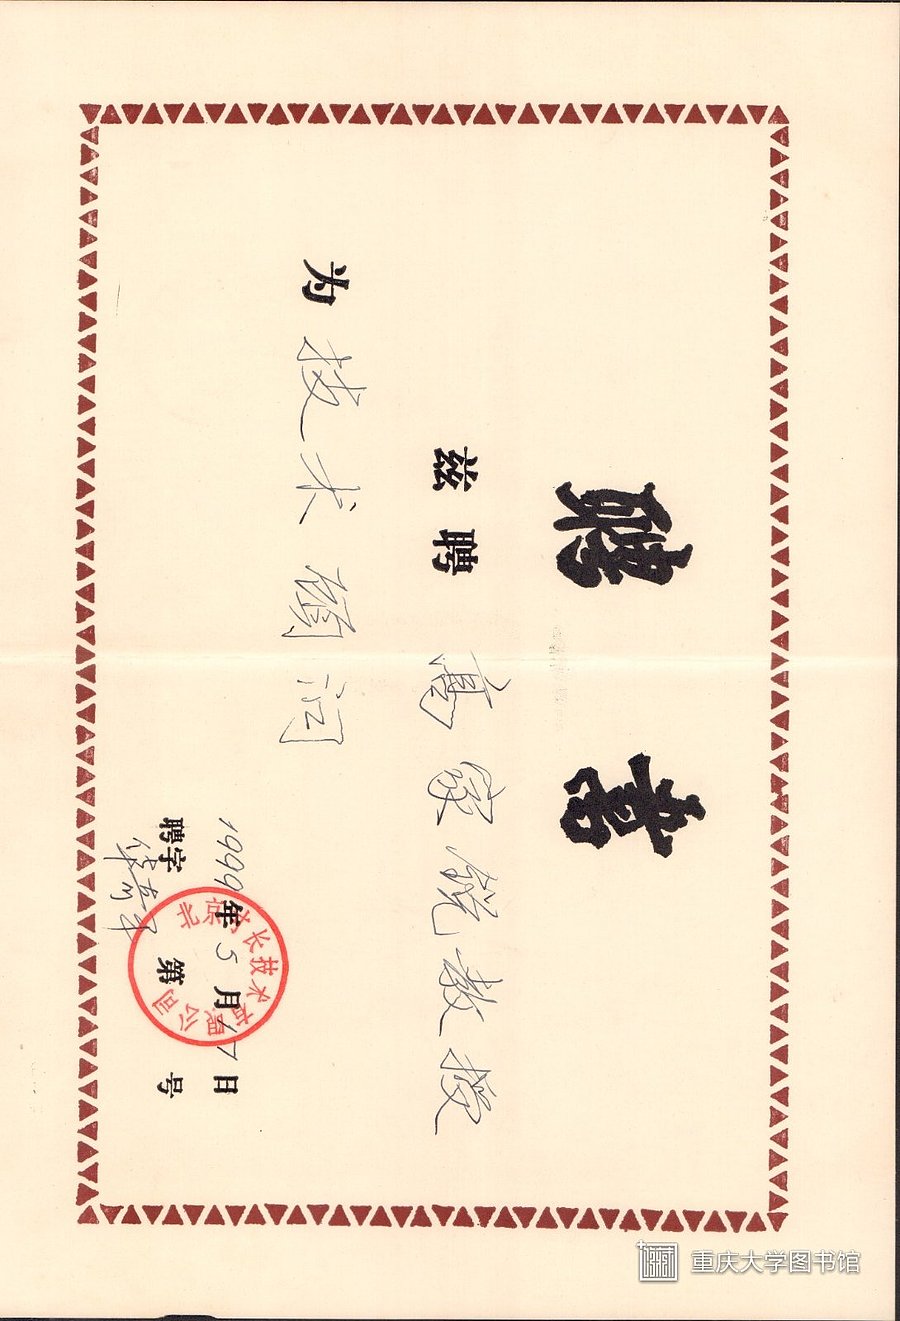 聘书
兹聘 高家锐教授
为 技术顾问
1999年5月17日
聘字 第 号
技术有限公司
重庆大学图书馆